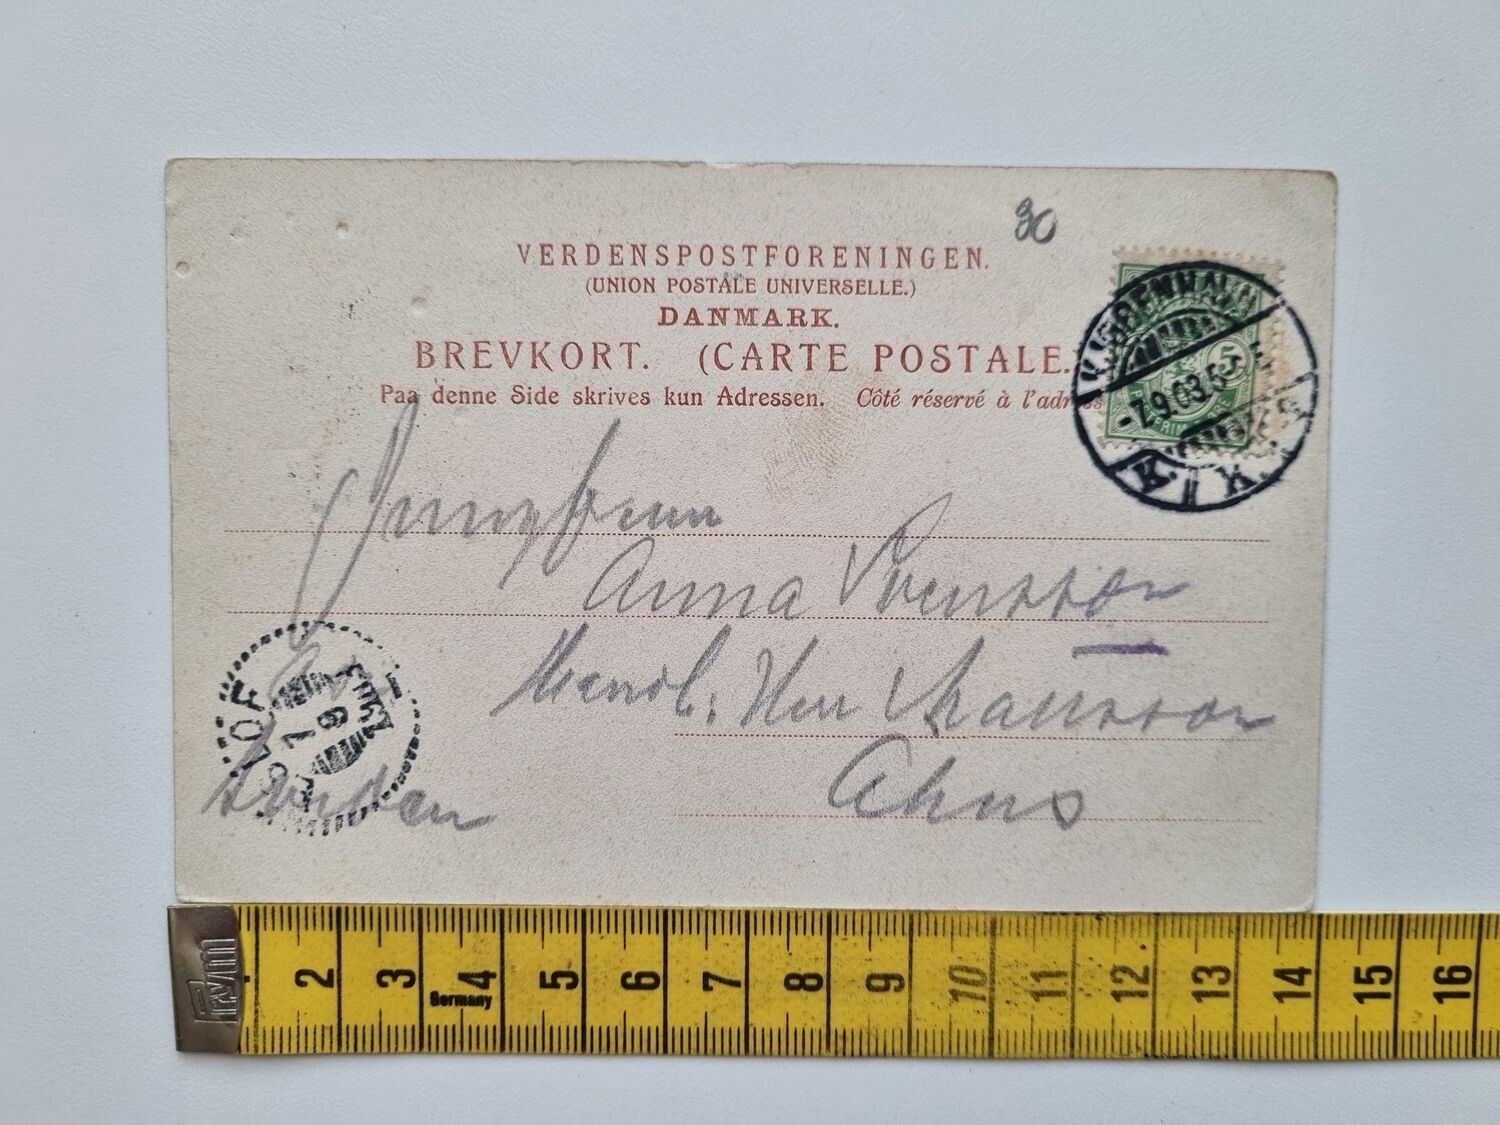 30
VERDENSPOSTFORENINGEN.
(UNION POSTALE UNIVERSELLE.)
DANMARK.
BREVKORT. (CARTE POSTALE.
Paa denne Side skrives kun Adressen. Côté réservé à l'adres
KJØBENHAVN
5
-7.9.03.5
K.
K.
Jungfrun
Anna Svensson
Handl. Herr Månsson
Åhus
7 9
Sweden
Prym
2 3 4 5 6 7 8 9 10 11 12 13 14 15 16
Germany